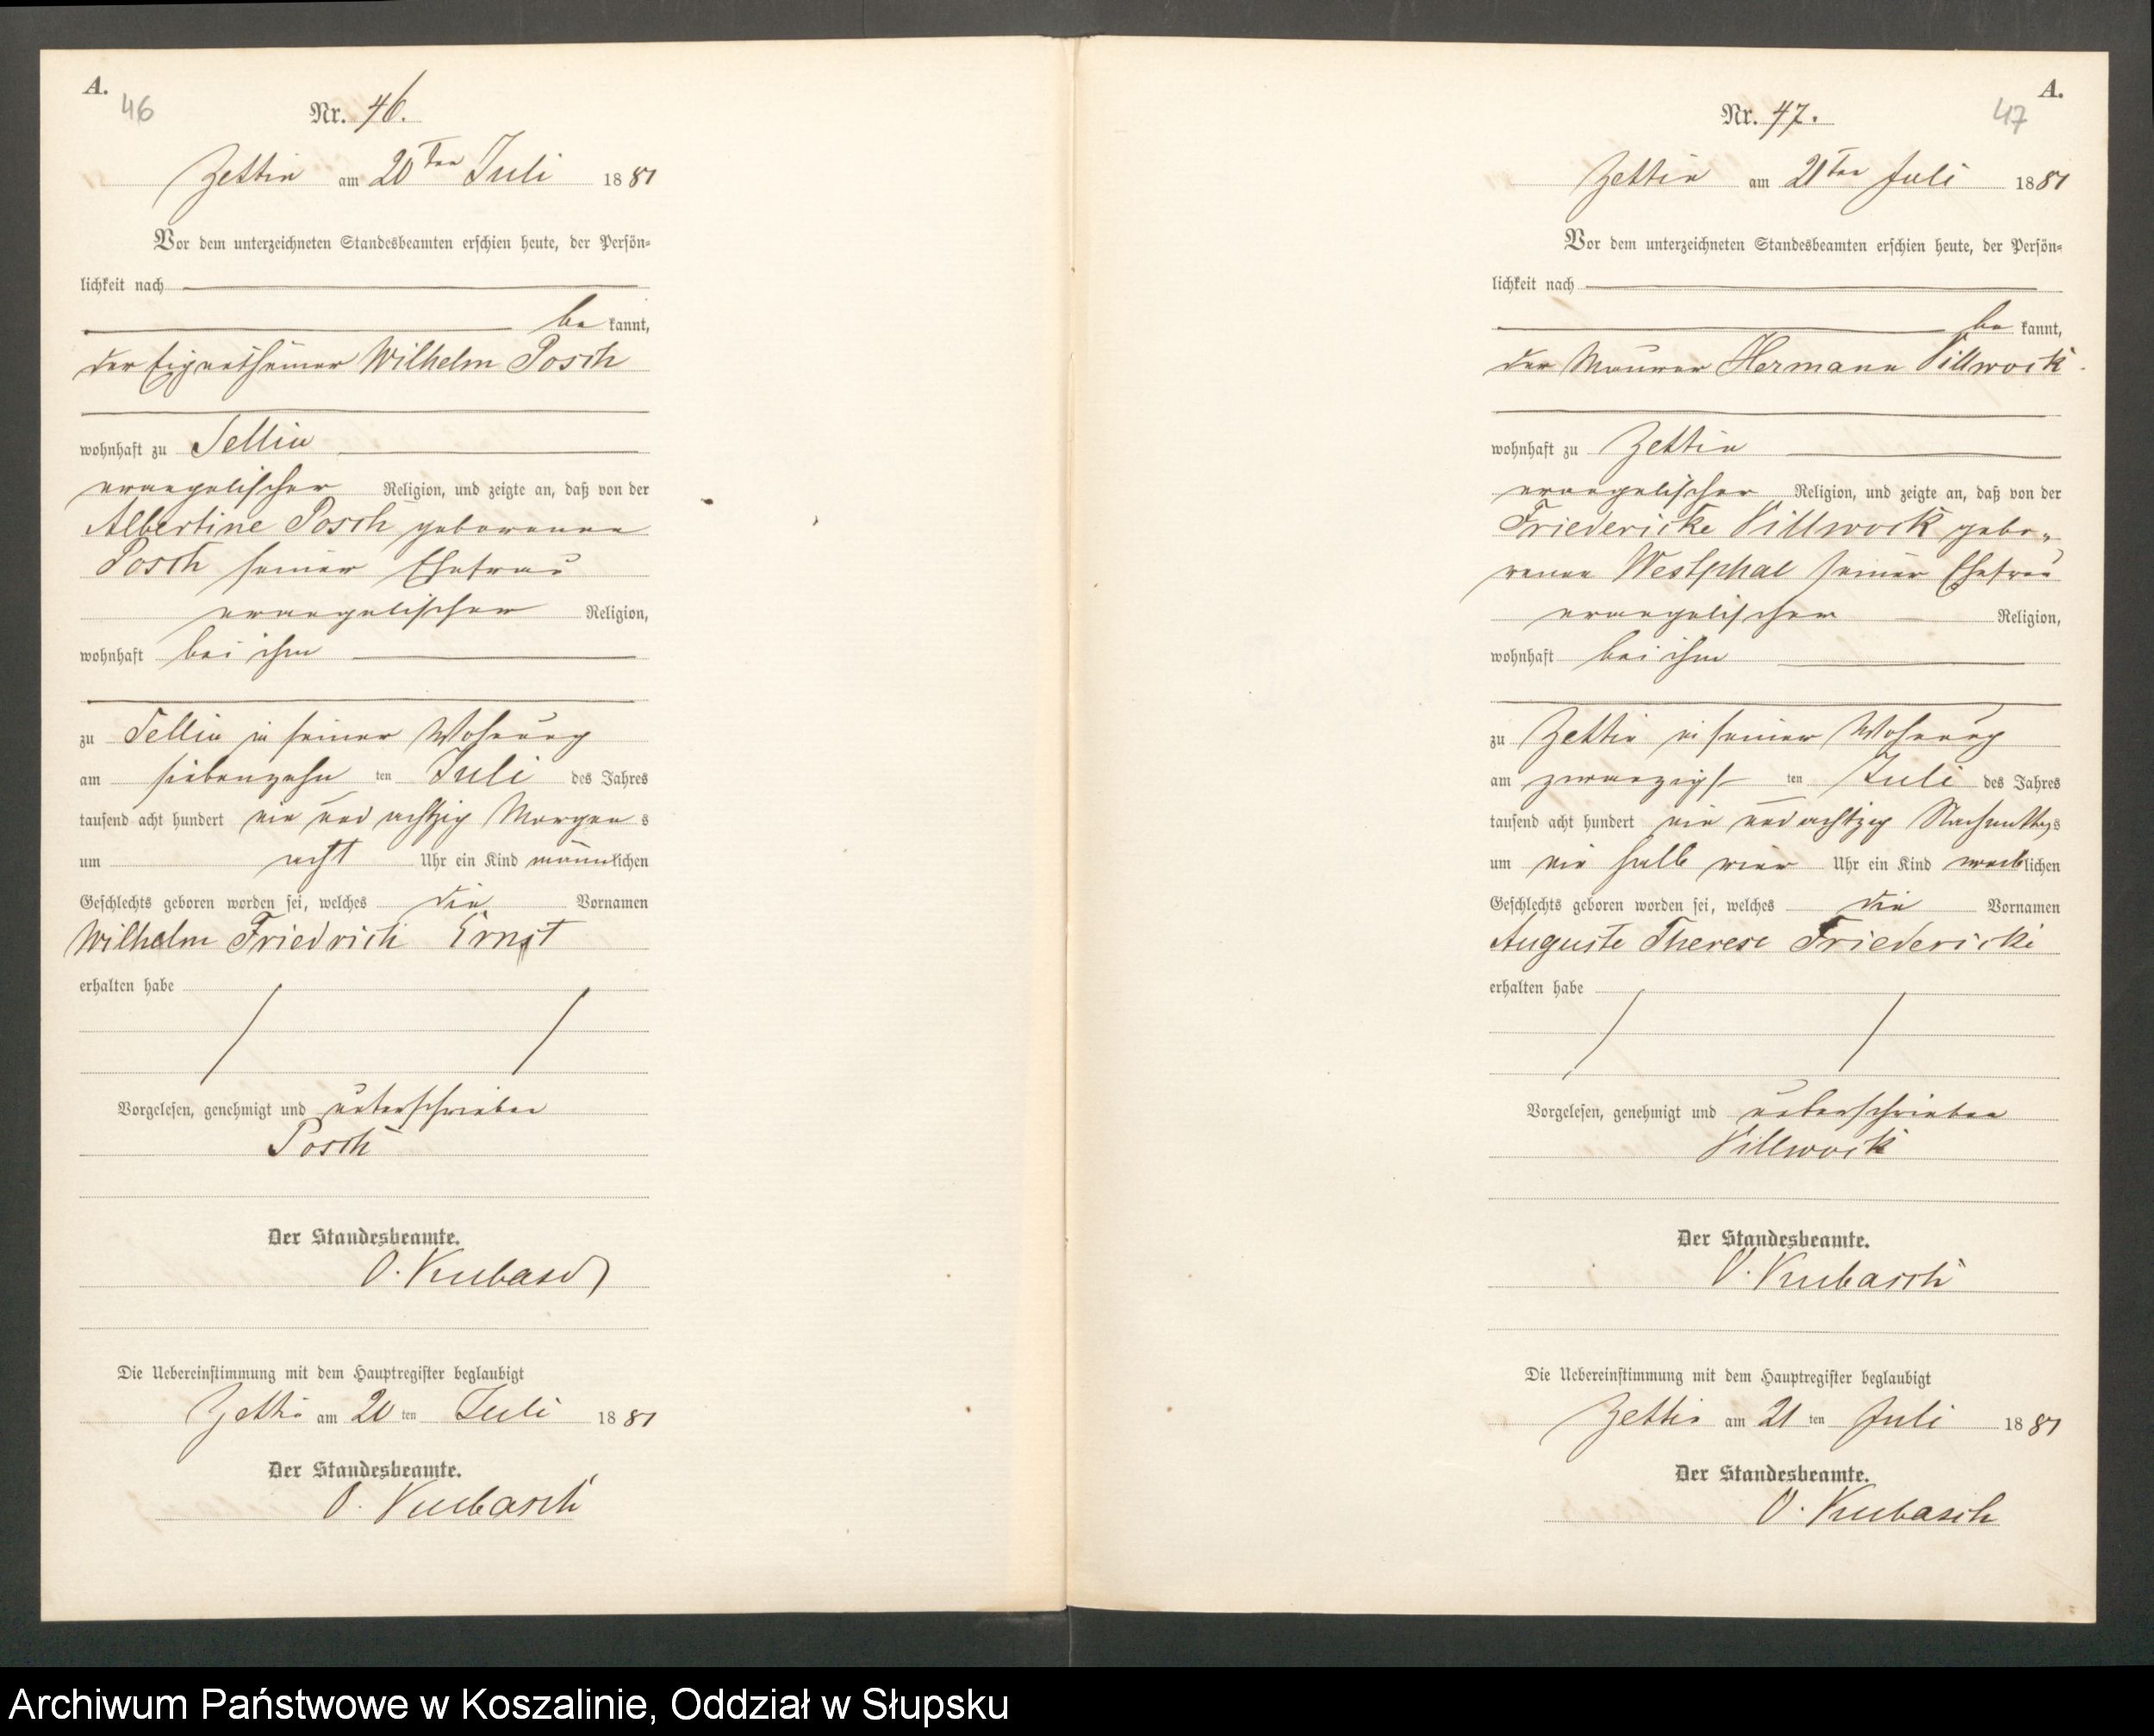 A.
46
Nr. 46.
Zettin am 20ten Juli 1881
Vor dem unterzeichneten Standesbeamten erschien heute, der Persön-
lichkeit nach
be kannt,
der Eigenthümer Wilhelm Posch
wohnhaft zu Tellin
evangelischer Religion, und zeigte an, daß von der
Albertine Posch geborenen
Posch seiner Ehefrau
evangelischer Religion,
wohnhaft bei ihm
zu Tellin in seiner Wohnung
am siebenzehn ten Juli des Jahres
tausend acht hundert ein und achtzig Morgen s
um acht Uhr ein Kind männlichen
Geschlechts geboren worden sei, welches die Vornamen
Wilhelm Friedrich Ernst
erhalten habe
Vorgelesen, genehmigt und unterschrieben
Posch
Der Standesbeamte.
O. Kubasch
Die Uebereinstimmung mit dem Hauptregister beglaubigt
Zettin am 20 ten Juli 1881
Der Standesbeamte.
O. Kubasch
A.
47
Nr. 47.
Zettin am 21ten Juli 1881
Vor dem unterzeichneten Standesbeamten erschien heute, der Persön-
lichkeit nach
be kannt,
der Maurer Hermann Villwock
wohnhaft zu Zettin
evangelischer Religion, und zeigte an, daß von der
Friedericke Villwock gebo-
renen Westphal seiner Ehefrau
evangelischer Religion,
wohnhaft bei ihm
zu Zettin in seiner Wohnung
am zwanzigst ten Juli des Jahres
tausend acht hundert ein und achtzig Nachmittags
um ein halb vier Uhr ein Kind weiblichen
Geschlechts geboren worden sei, welches die Vornamen
Auguste Therese Friedericke
erhalten habe
Vorgelesen, genehmigt und unterschrieben
Villwock
Der Standesbeamte.
O. Kubasch
Die Uebereinstimmung mit dem Hauptregister beglaubigt
Zettin am 21 ten Juli 1881
Der Standesbeamte.
O. Kubasch
Archiwum Państwowe w Koszalinie, Oddział w Słupsku